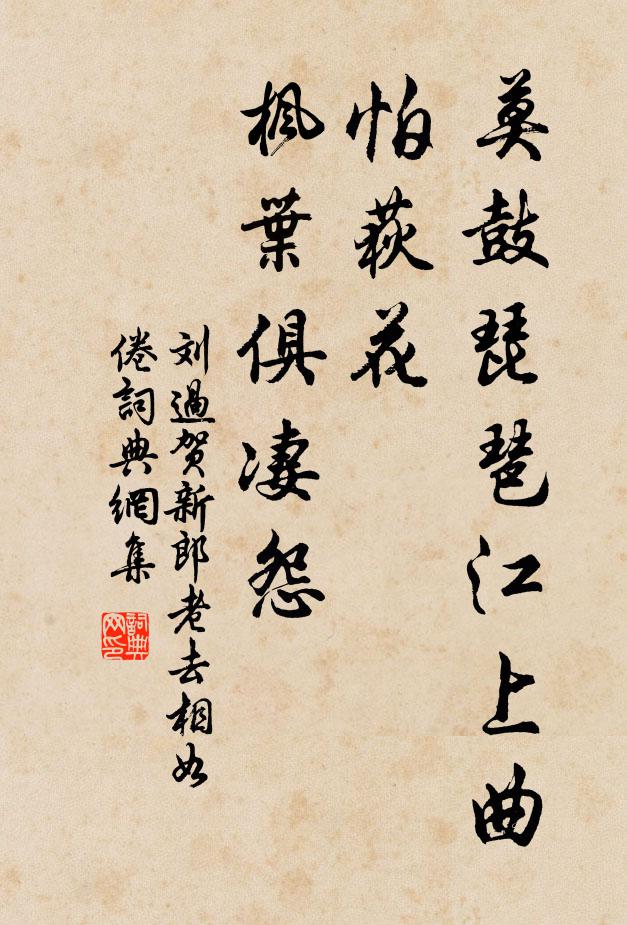 莫鼓琵琶江上曲
怕荻花
楓葉俱凄怨
刘過贺新郎老去相如
倦詞典網集
詞典网印